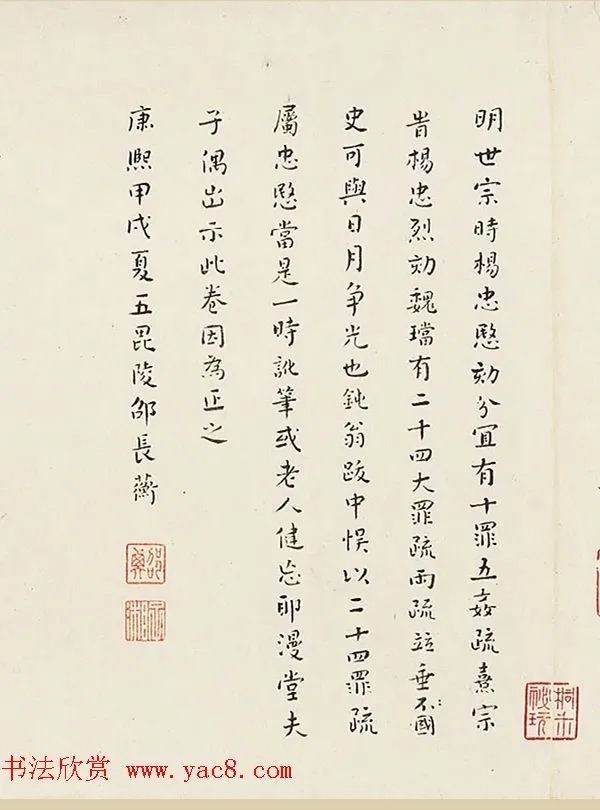 明世宗時楊忠愍劾分宜有十罪五姦疏熹宗
旹楊忠烈劾魏璫有二十四大罪疏兩疏竝垂不國
史可與日月争光也鈍翁跋中悮以二十四罪疏
屬忠愍當是一時訛筆或老人健忘耶漫堂夫
子偶出示此卷因為正之
康熙甲戌夏五毘陵邵長蘅
书法欣赏 www.yac8.com